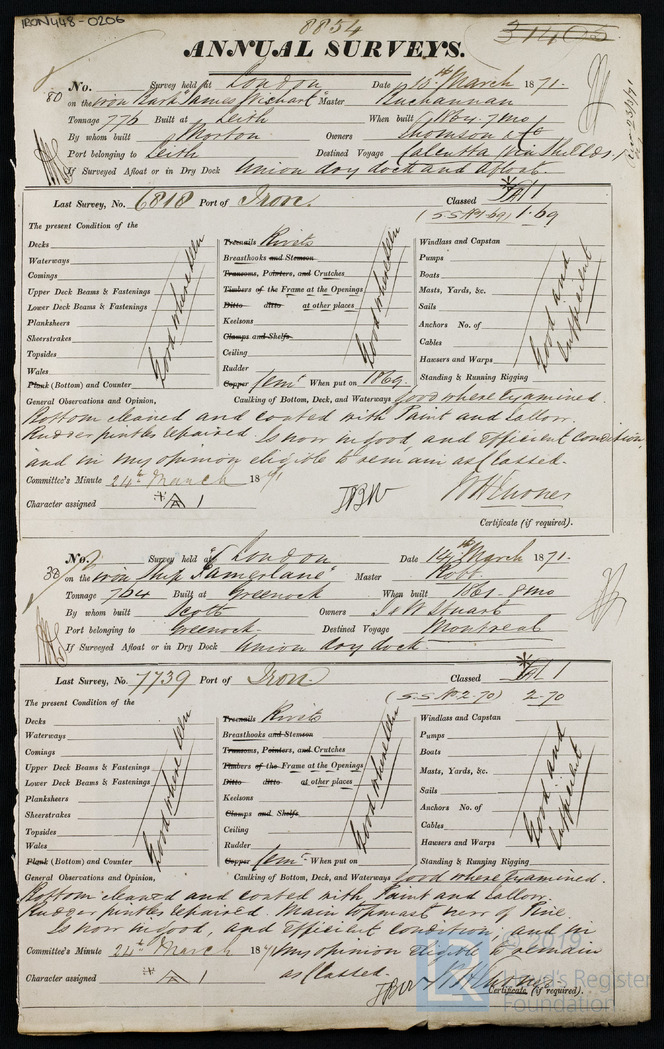 IRON 448-0206
8854
31406
ANNUAL SURVEYS.
No. 80 Survey held at London Date 15th March 1871.
on the iron Bark "James Wishart" Master Buchannan
Tonnage 776 Built at Leith When built 1867. 7mo
By whom built Morton Owners Thomson & Co
Port belonging to Leith Destined Voyage Calcutta via Shields.
If Surveyed Afloat or in Dry Dock Union dry dock and Afloat.
Last Survey, No. 6818 Port of Iron. Classed A 1
(SS No 1-69) 1.69
The present Condition of the
Decks
Waterways
Comings
Upper Deck Beams & Fastenings
Lower Deck Beams & Fastenings
Planksheers
Sheerstrakes
Topsides
Wales
Plank (Bottom) and Counter
Good where seen
Treenails Rivets
Breasthooks and Stemson
Transoms, Pointers, and Crutches
Timbers of the Frame at the Openings
Ditto ditto at other places
Keelsons
Clamps and Shelfs
Ceiling
Rudder
Copper Cemt When put on 1869
Good where seen
Windlass and Capstan
Pumps
Boats
Masts, Yards, &c.
Sails
Anchors No. of
Cables
Hawsers and Warps
Standing & Running Rigging
Good and Sufficient
General Observations and Opinion, Caulking of Bottom, Deck, and Waterways Good where Examined.
Bottom cleaned and coated with Paint and tallow.
Rudder pintles repaired. Is now in good, and Efficient condition,
and in my opinion eligible to remain as Classed.
Committee's Minute 24th March 1871
Character assigned A 1
Certificate (if required).
No. 38 Survey held at London Date 14th March 1871.
on the iron Ship "Tamerlane" Master Robb
Tonnage 764 Built at Greenock When built 1861-8mo
By whom built Scott Owners J & W Stuart
Port belonging to Greenock Destined Voyage Montreal
If Surveyed Afloat or in Dry Dock Union dry dock.
Last Survey, No. 7739 Port of Iron. Classed A 1
(S.S. No 2-70) 2-70
The present Condition of the
Decks
Waterways
Comings
Upper Deck Beams & Fastenings
Lower Deck Beams & Fastenings
Planksheers
Sheerstrakes
Topsides
Wales
Plank (Bottom) and Counter
Good where seen
Treenails Rivets
Breasthooks and Stemson
Transoms, Pointers, and Crutches
Timbers of the Frame at the Openings
Ditto ditto at other places
Keelsons
Clamps and Shelfs
Ceiling
Rudder
Copper Cemt When put on
Good where seen
Windlass and Capstan
Pumps
Boats
Masts, Yards, &c.
Sails
Anchors No. of
Cables
Hawsers and Warps
Standing & Running Rigging
Good and Sufficient
General Observations and Opinion, Caulking of Bottom, Deck, and Waterways Good where Examined.
Bottom cleaned and coated with Paint and tallow.
Rudder pintles repaired. Main topmast new of Pine.
Is now in good, and Efficient condition, and in
Committee's Minute 24th March 1871 my opinion eligible to remain
Character assigned A 1 as Classed.
Certificate (if required).
© 2019
Lloyd's Register
Foundation